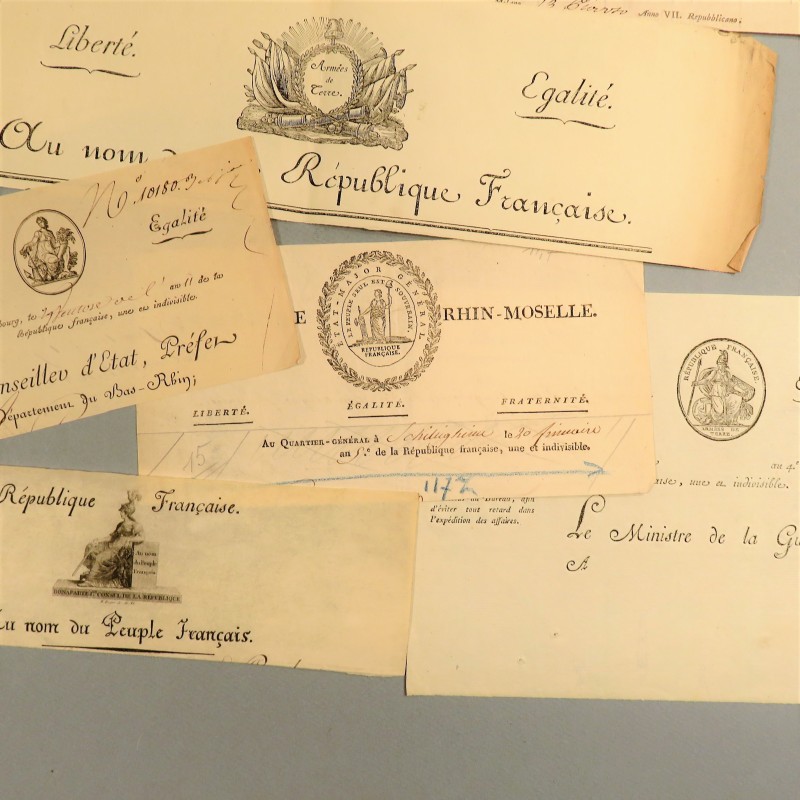 Anno VII. Repubblicano;
Liberté.
Armées
de
Terre.
Egalité.
Au nom d
République Française.
N.º 10180.
Egalité
an 11 de la
République française, une et indivisible.
nseiller d'Etat, Préfet
Département du Bas-Rhin;
E RHIN-MOSELLE.
ETAT-MAJOR GÉNÉRAL
LE PEUPLE SEUL EST SOUVERAIN.
RÉPUBLIQUE
FRANÇAISE.
LIBERTÉ. ÉGALITÉ. FRATERNITÉ.
AU QUARTIER-GÉNÉRAL à Schiltigheim le 20 frimaire
an 5.e de la République française, une et indivisible.
15
1172
RÉPUBLIQUE FRANÇAISE.
ARMÉE DE
TERRE.
an 4e
aise, une et indivisible.
du Bureau, afin
d'éviter tout retard dans
l'expédition des affaires.
Le Ministre de la Gu
A
République Française.
Au nom
du Peuple
Français
BONAPARTE 1er CONSUL DE LA RÉPUBLIQUE
Au nom du Peuple Français.